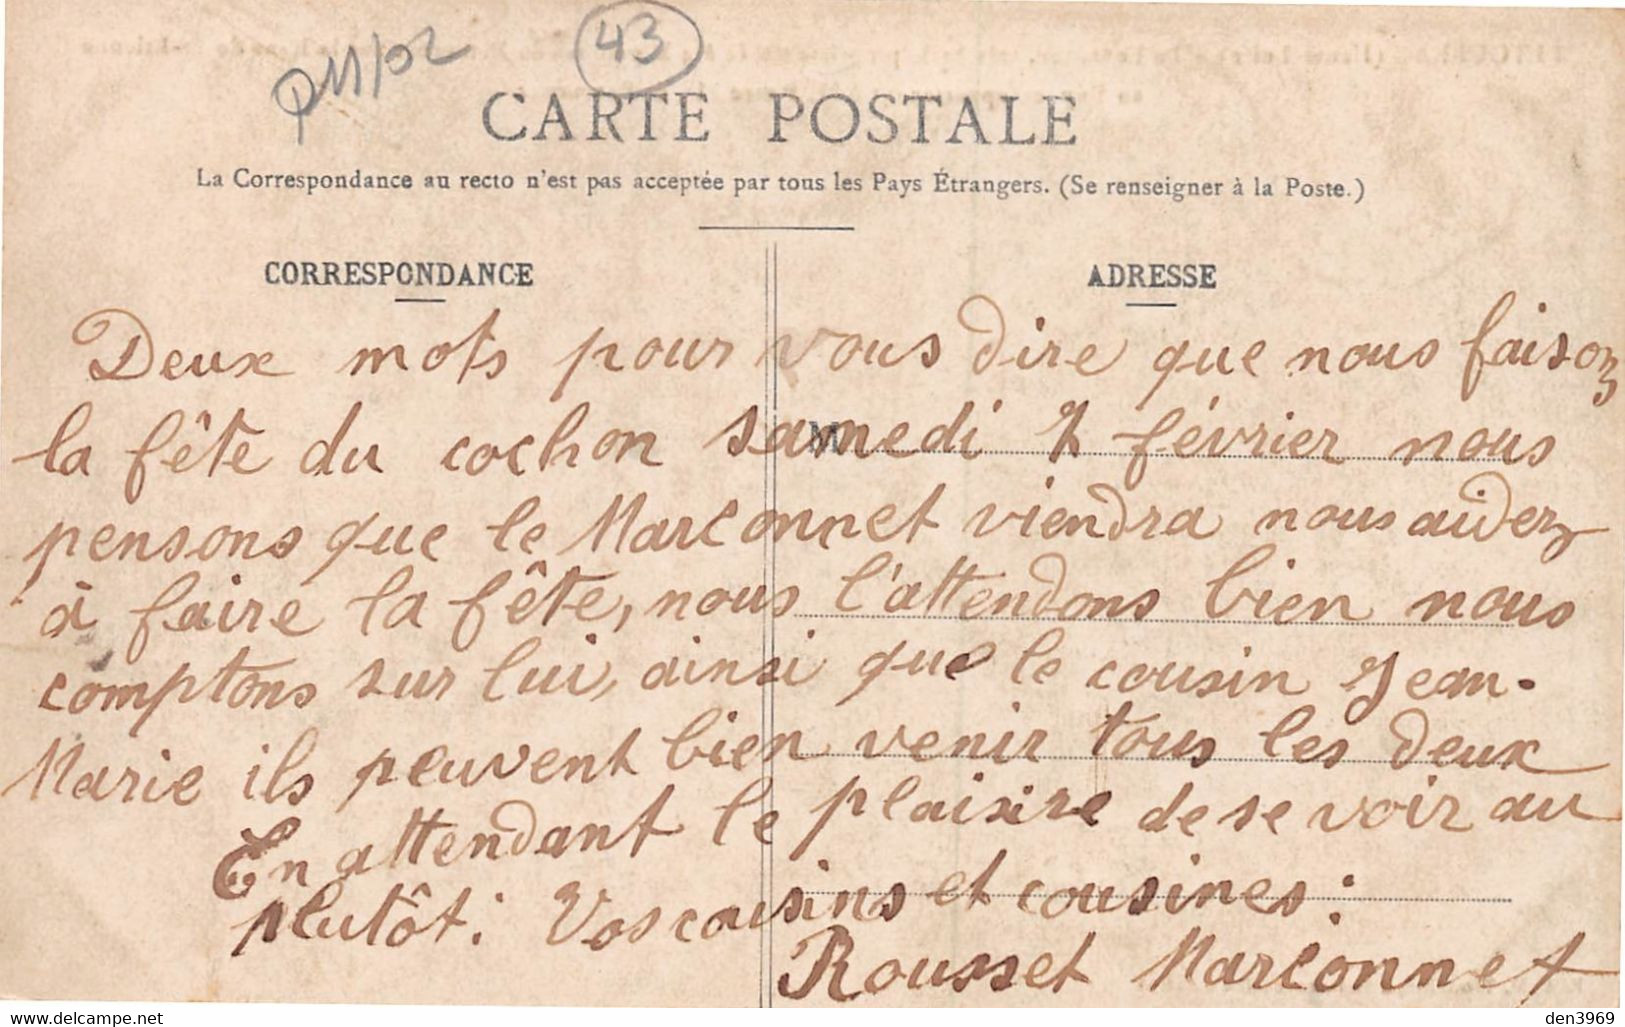 P11/02
43
CARTE POSTALE
La Correspondance au recto n'est pas acceptée par tous les Pays Étrangers. (Se renseigner à la Poste.)
CORRESPONDANCE
ADRESSE
Deux mots pour vous dire que nous faison
la fête du cochon samedi 7 février nous
pensons que le Marconnet viendra nous aider
à faire la fête, nous l'attendons bien nous
comptons sur lui, ainsi que le cousin Jean-
Marie ils peuvent bien venir tous les deux
En attendant le plaisire de se voir au
plutôt: Vos cousins et cousines:
Rousset Marconnet
www.delcampe.net
den3969